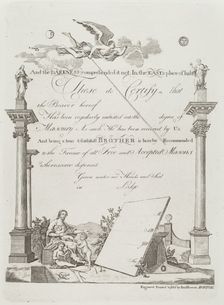 And the DARKNESS comprehended it not. In the EAST a place of Light
These do Certify that
the Bearer hereof
Has been regularly initiated into the degree of
MASONRY As such He has been received by Us
And being a true & faithfull BROTHER is hereby Recommended
to the Favour of all Free and Accepted MASONS
wheresoever dispersed
Given under our Hands and Seal
in Lodge